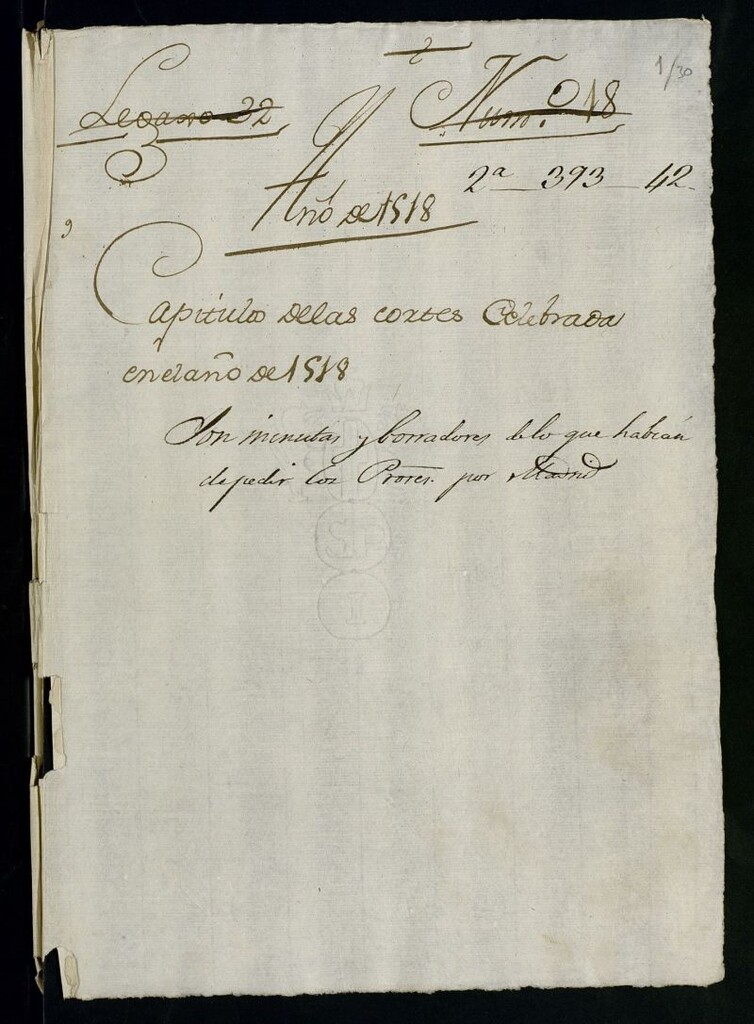 1/30
Legaxo 22 Num.º 18
2ª 393 42
Año de 1518
Capitulo delas cortes Celebrada
en el año de 1518
Son minutas y borradores de lo que habian
de pedir los Prores. por Madrid
SP
I